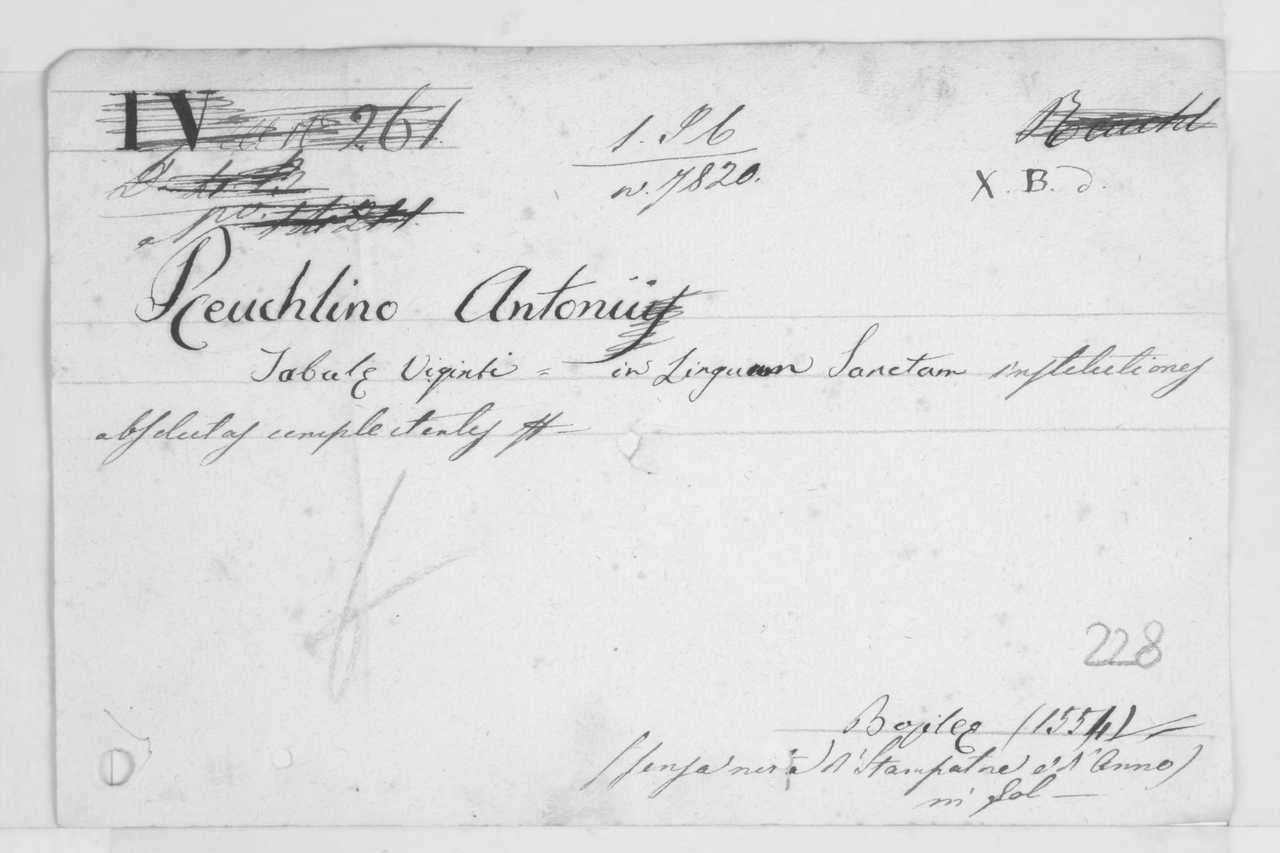 IV 261
1. P6
n. 7820.
X. B. d.
Reuchlino Antonii
Tabulę Viginti = in Linguam Sanctam institutiones
absolutas complectentes #
228
Basileę (1554)
(senza nota di Stampatore e d'Anno)
in fol